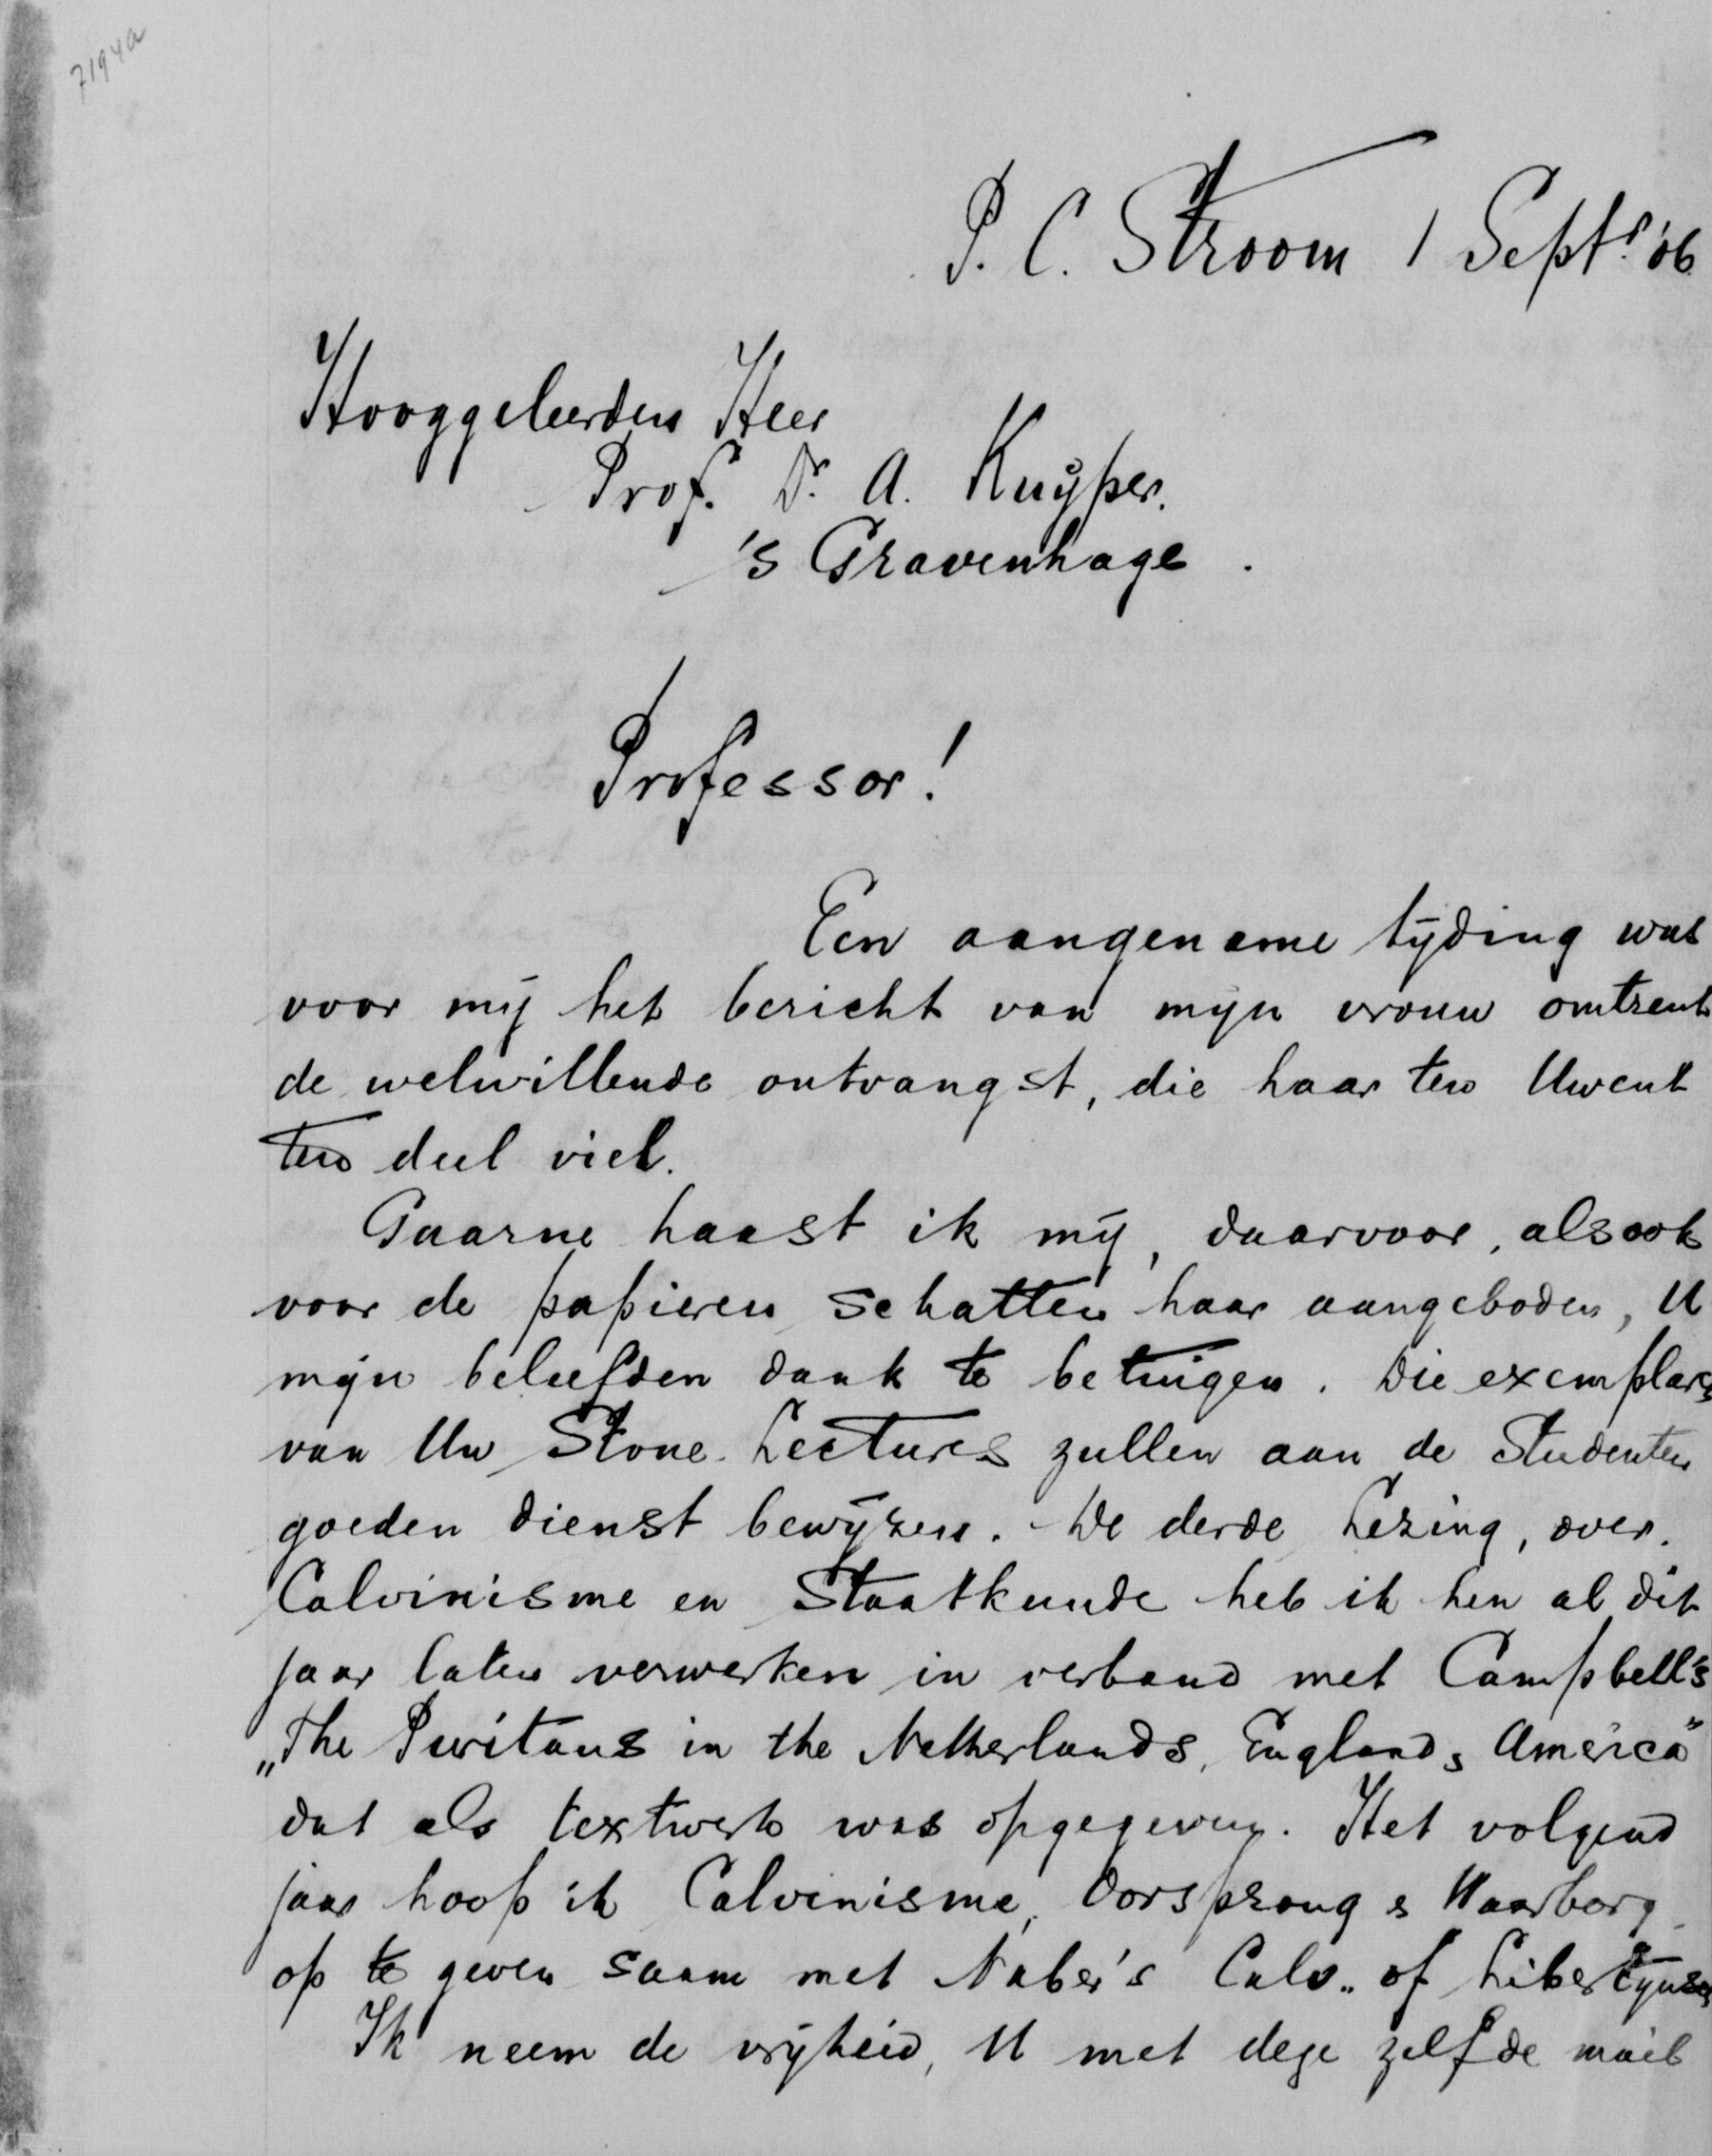 7194a
P. C. Stroom 1 Septr. '06
Hooggeleerden Heer
Prof. Dr. A. Kuÿper.
's Gravenhage.
Professor!
Een aangename tijding was
voor mij het bericht van mijn vrouw omtrent
de welwillende ontvangst, die haar ten Uwent
ten deel viel.
Gaarne haast ik mij, daarvoor, alsook
voor de papieren schatten haar aangeboden, U
mijn beleefden dank te betuigen. Die exemplare
van Uw Stone-Lectures zullen aan de Studenten
goeden dienst bewijzen. De derde Lezing, over
Calvinisme en Staatkunde heb ik hen al dit
jaar laten verwerken in verband met Campbell's
„The Puritans in the Netherlands, England & America"
dat als textwerk was opgegeven. Het volgend
jaar hoop ik Calvinisme, Oorsprong & Waarborg
op te geven saam met Naber's Calv. of Libertijnsch
Ik neem de vrijheid, U met deze zelfde mail